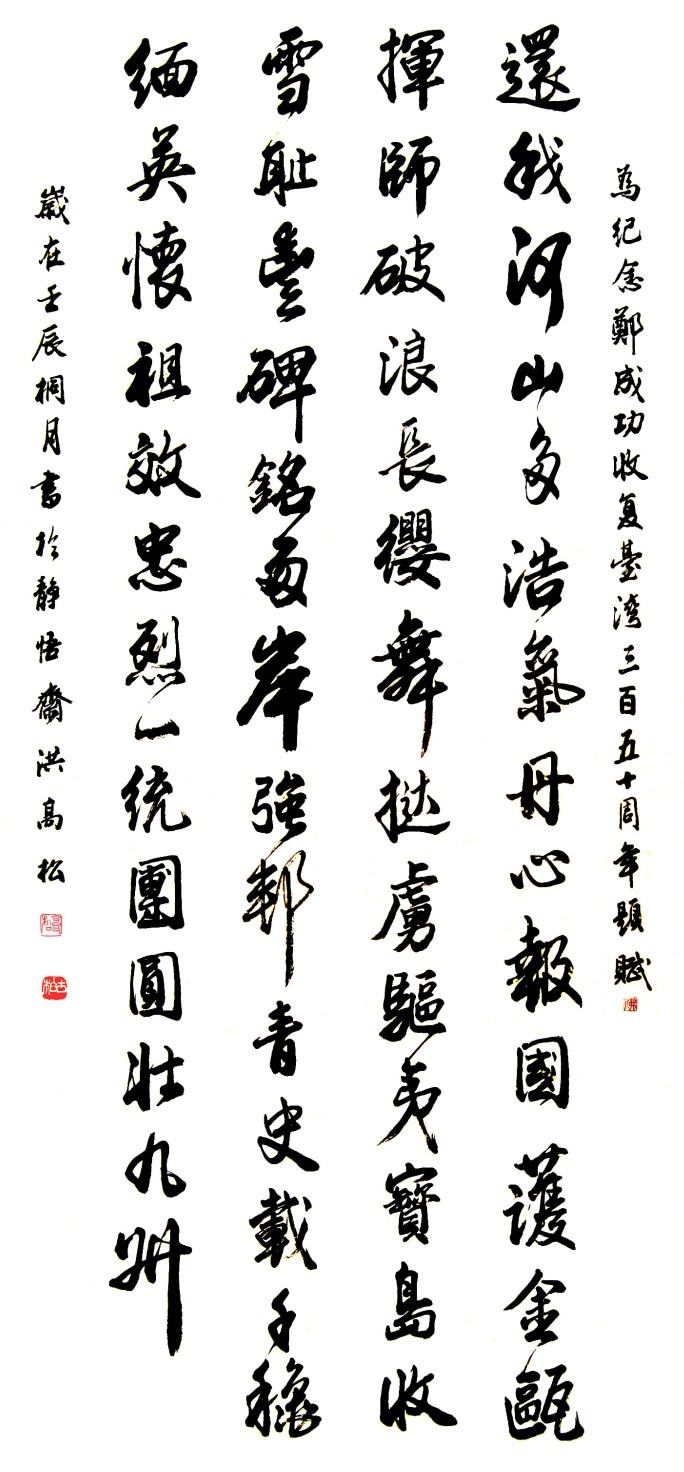 為紀念鄭成功收复臺湾三百五十周年題賦
還我河山多浩氣丹心報國護金甌
揮師破浪長纓舞挞虜驅夷寶島收
雪耻豐碑銘兩岸強邦青史載千穐
緬英懷祖效忠烈一統團圓壯九州
歲在壬辰桐月書於静悟齋洪高松